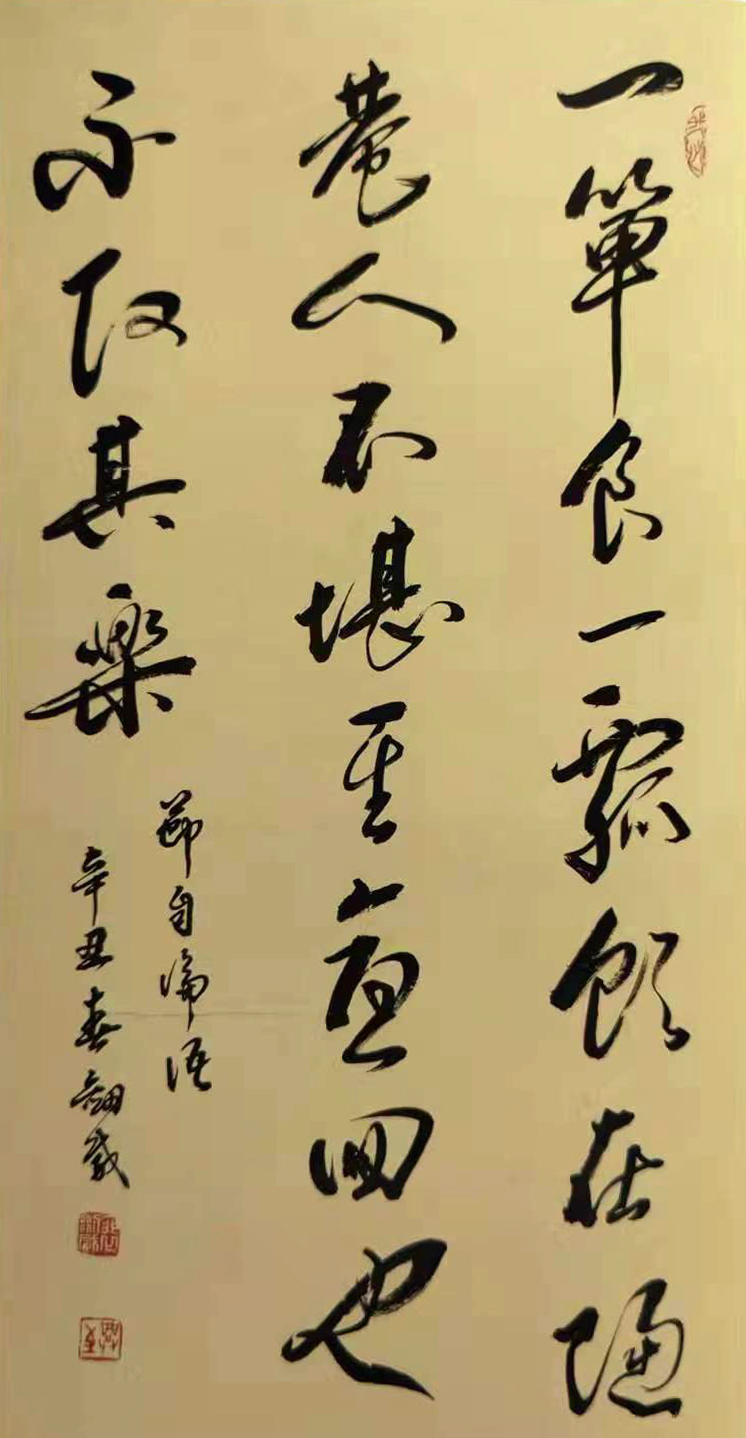 一箪食一瓢飲在陋
巷人不堪其憂回也
不改其樂
節自論語
辛丑春